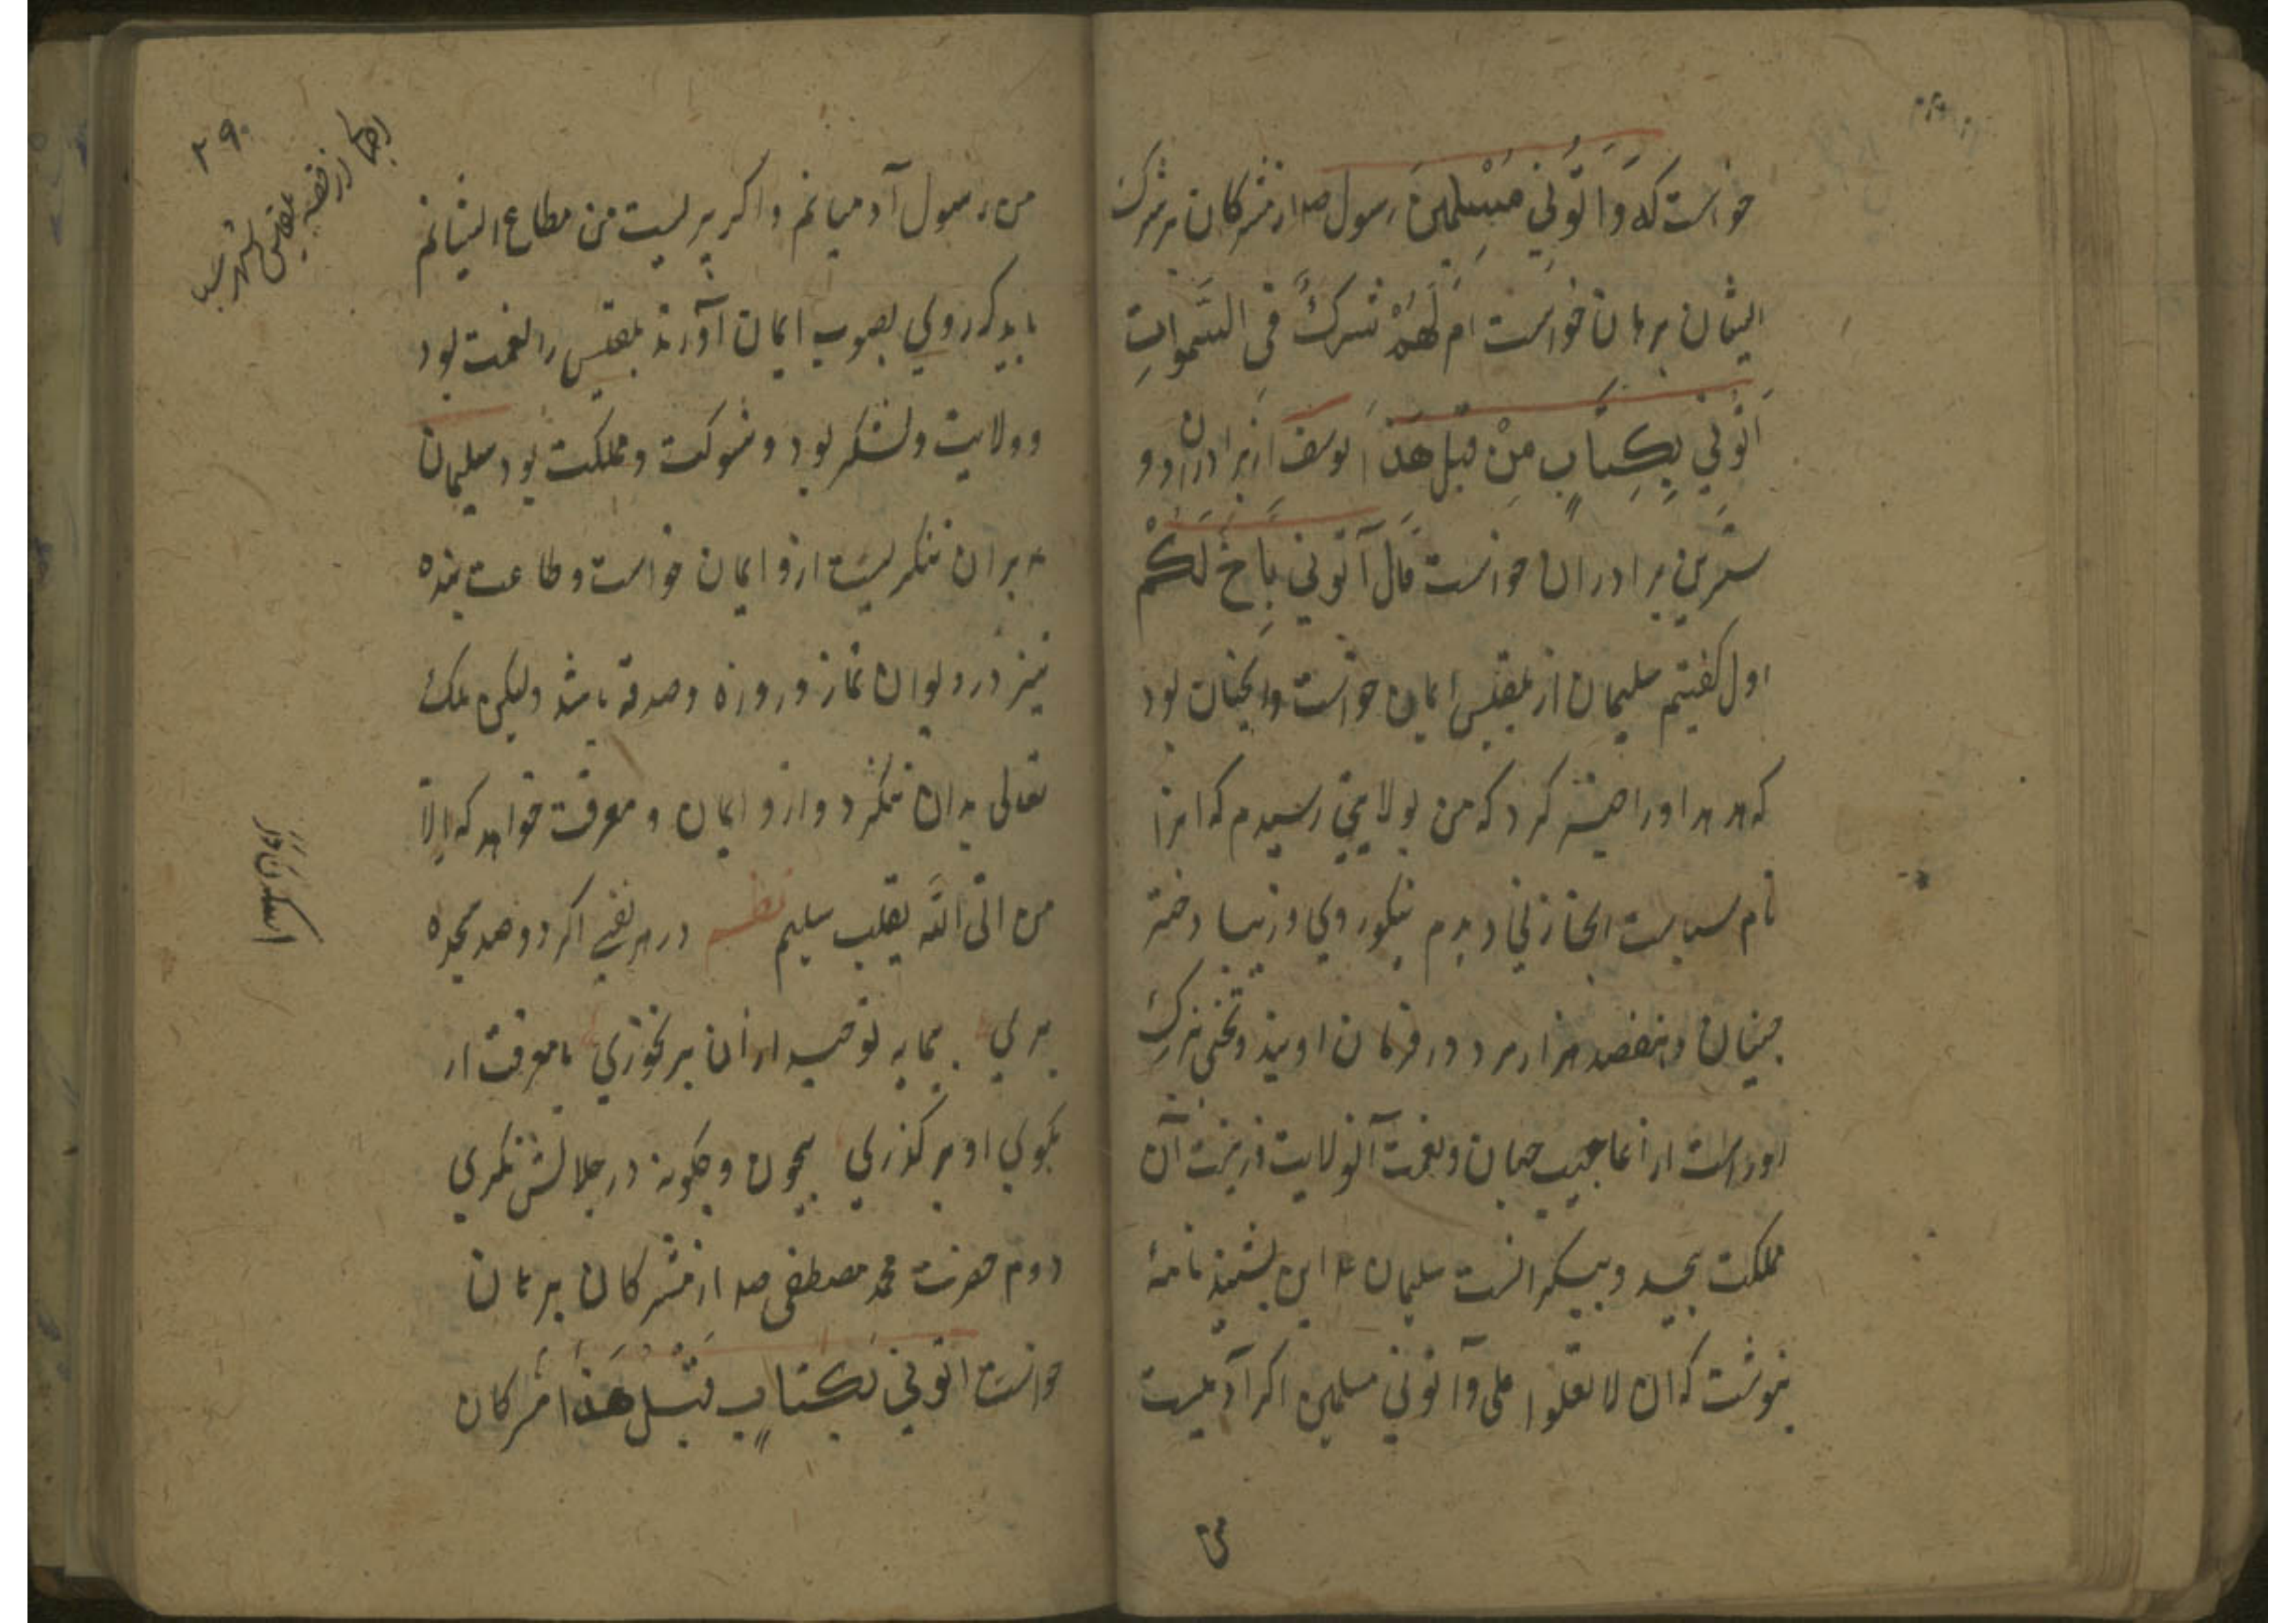 خواست که وَاْتُونِي مُسْلِمِينَ رسول صه از مشرکان بر شرک
ایشان برهان خواست اَمْ لَهُمْ شِرْكٌ فِي السَّمٰوَاتِ
اِتُونِي بِكِتَابٍ مِنْ قَبْلِ هَذَا یوسف از برادران
ستربن برادران خواست قَالَ آتُونِي بِأَخٍ لَكُمْ
اول گفتیم سلیمان از بلقیس ایمان خواست و آنچنان بود
که هدهد اورا کرد که من بولایتی رسیدم که انرا
نام سباست انجا زنی دیدم نیکوروی وزیبا دختر
جنیان و هفصد هزار مرد در فرمان اویند و تختی بزرگ
اوراست از اعاجیب جهان و نعمت آنولایت و زینت آن
مملکت بیحد و بیکرانست سلیمان ع این بشنید نامۀ
بنوشت که ان لا تعلوا علی وآتونی مسلمین اکر آدمیست
من رسول آدمیانم واکر پریست من مطاع ایشانم
باید که روی بصوب ایمان آورند بلقیس را نعمت بود
و ولایت ولشکر بود و شوکت ومملکت بود سلیمان
ع بران ننکریست ازو ایمان خواست وطاعت بنده
نیز در دیوان نماز و روزه وصدقه باشد ولیکن ملک
تعالی بدان ننکرد وازو ایمان و معرفت خواهد که الّا
من اتی الله بقلب سلیم نظم در هر نفسی اکر دو صد سجده
بری بی مایه توحید ازان برنخوری با معرفت ار
بکوی او برکذری بیچون وچکونه در جلالش نکری
دوم حضرت محمد مصطفی صه از مشرکان برهان
خواست اتونی بکتابٍ قبل هذا مشرکان
۲۹۰
قصه بلقیس شهر سبا